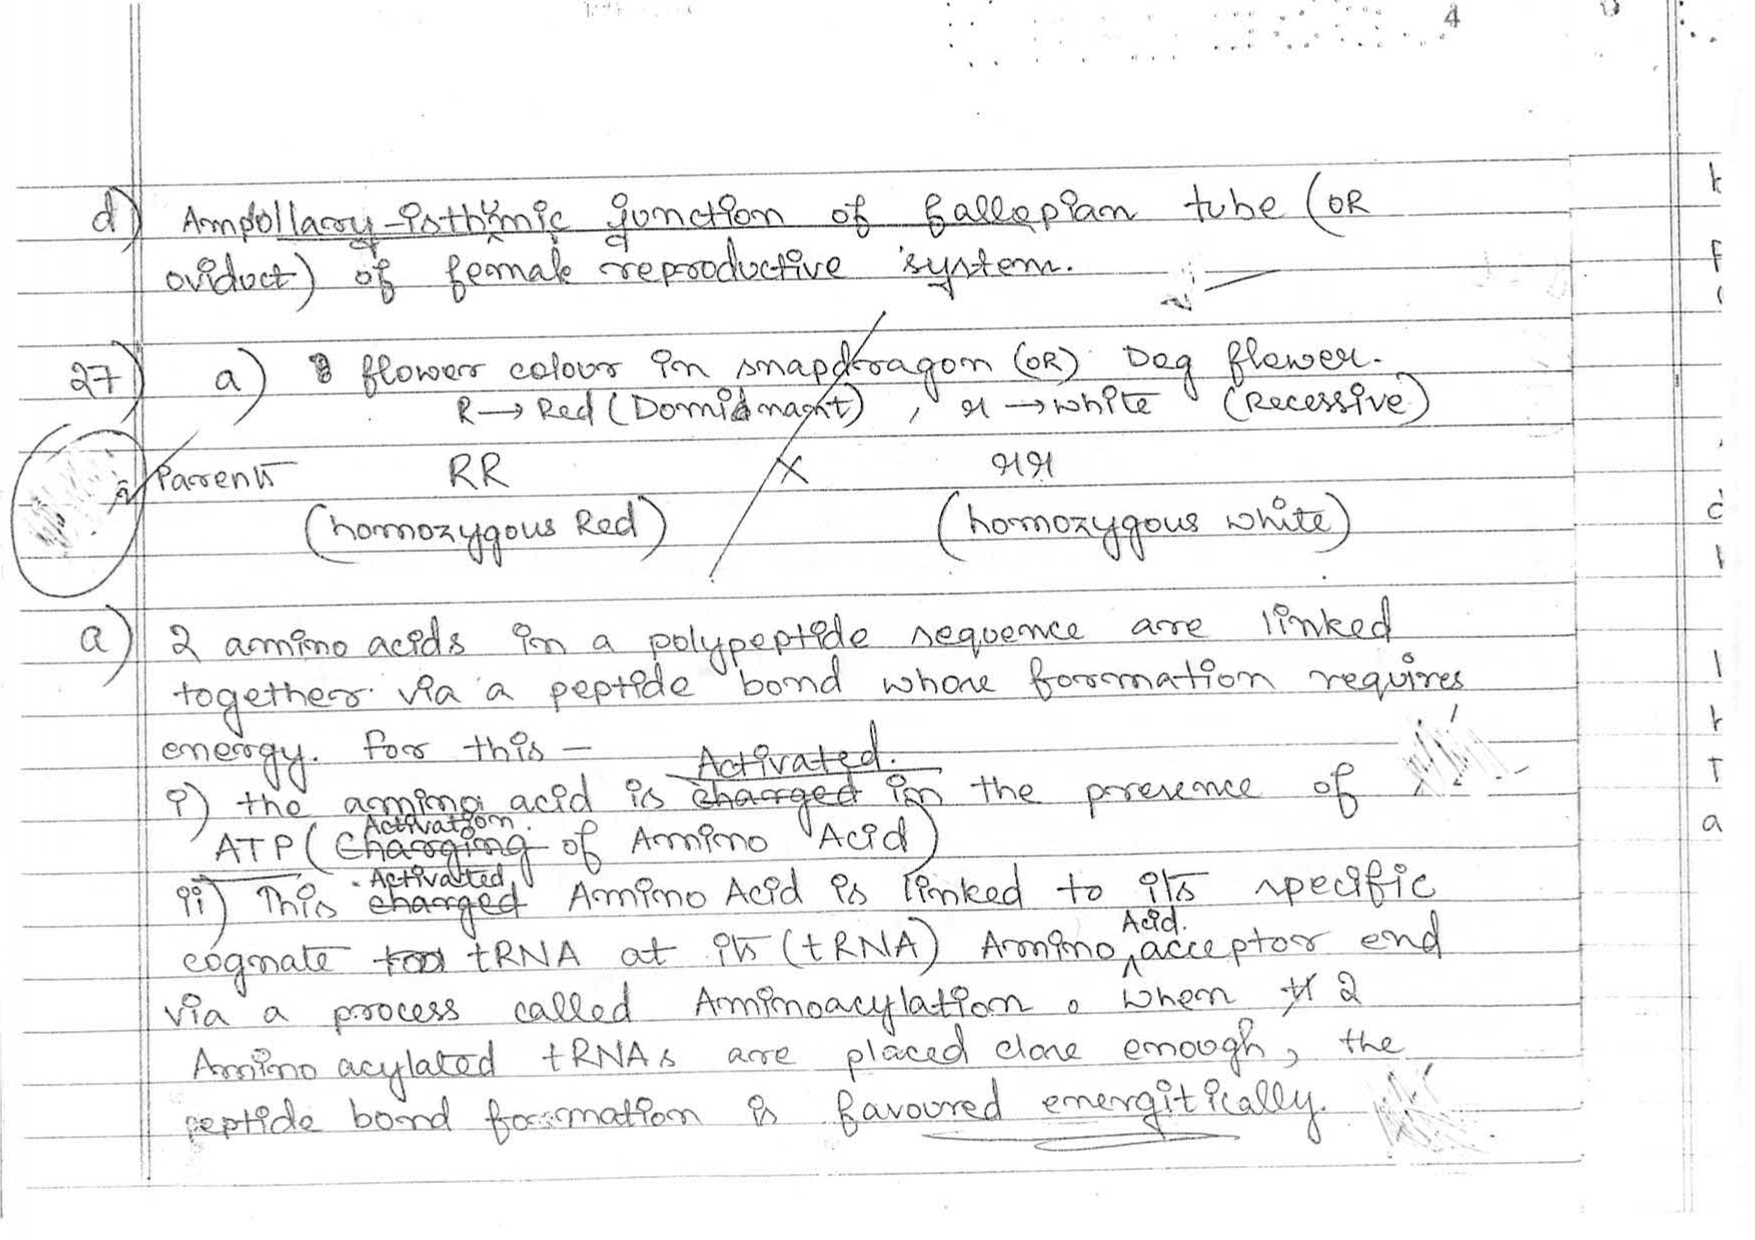 d) Ampollary-isthmic junction of fallopian tube (OR
oviduct) of female reproductive system.
27) a) flower colour in snapdragon (OR) Dog flower.
R → Red (Dominant), r → white (Recessive)
Parents RR X rr
(homozygous Red) (homozygous white)
a) 2 amino acids in a polypeptide sequence are linked
together via a peptide bond whose formation requires
energy. For this –
Activated.
i) the amino acid is charged in the presence of
Activation.
ATP (Charging of Amino Acid)
Activated
ii) This charged Amino Acid is linked to its specific
Acid.
cognate tRNA at its (tRNA) Amino acceptor end
via a process called Aminoacylation. When 2
Amino acylated tRNAs are placed close enough, the
peptide bond formation is favoured energitically.